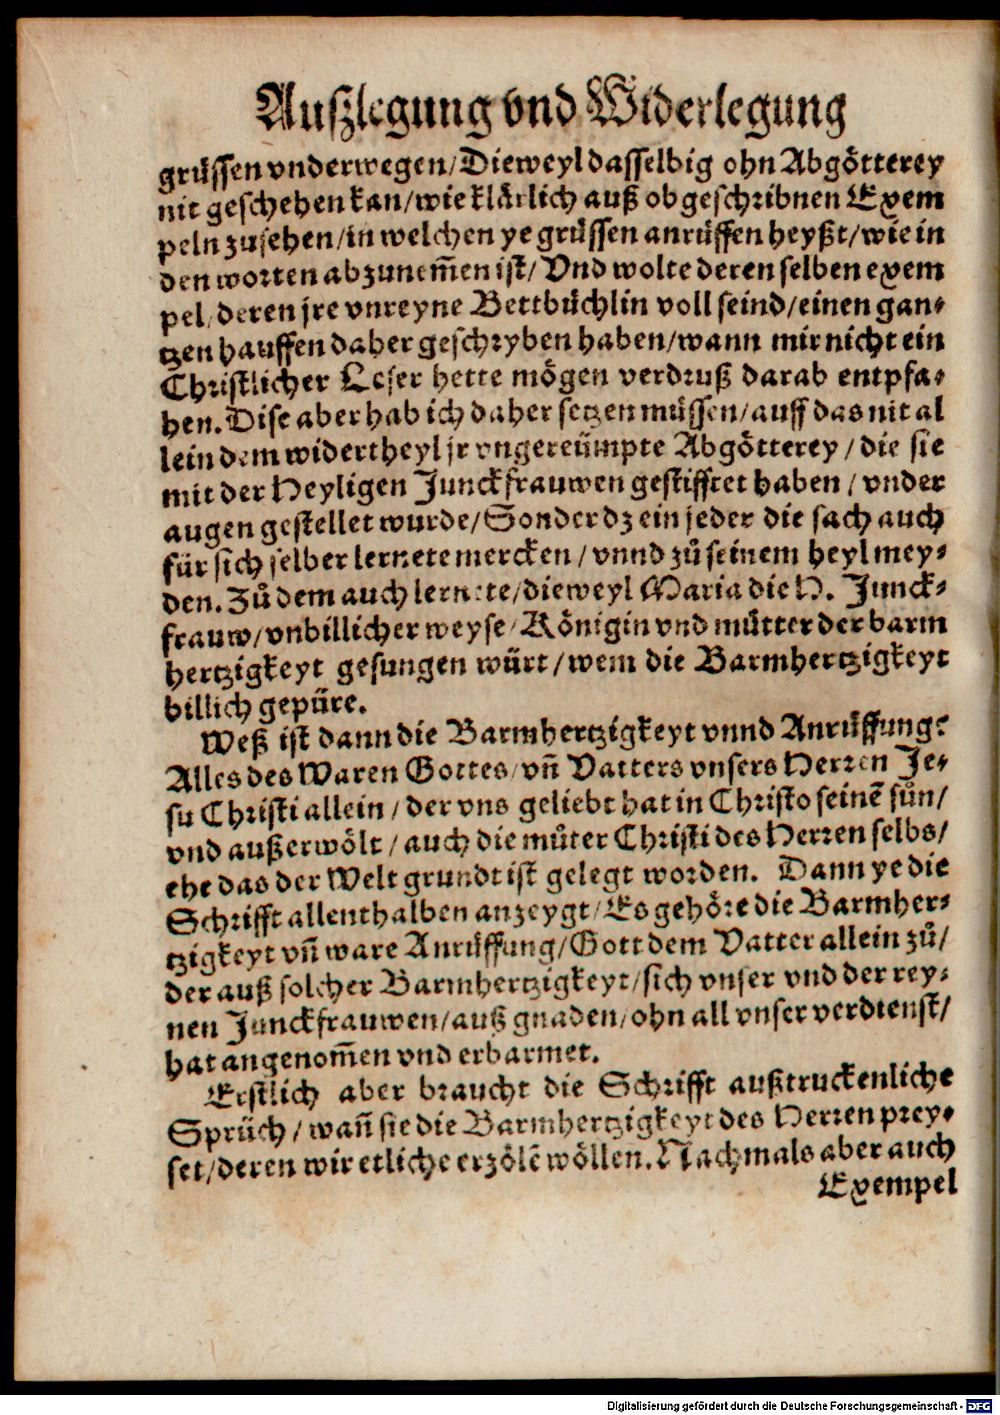 Außlegung vnd Widerlegung
grüssen vnderwegen/Dieweyl dasselbig ohn Abgötterey
nit geschehen kan/wie klärlich auß obgeschribnen Exem
peln zusehen/in welchen ye grüssen anrüffen heyßt/wie in
den worten abzunem̃en ist/ Vnd wolte deren selben exem
pel/deren jre vnreyne Bettbüchlin voll seind/einen gan⸗
tzen hauffen daher geschryben haben/wann mir nicht ein
Christlicher Leser hette mögen verdruß darab entpfa⸗
hen. Dise aber hab ich daher setzen müssen/auff das nit al
lein dem widertheyl jr vngereümpte Abgötterey/die sie
mit der Heyligen Junckfrauwen gestifftet haben/vnder
augen gestellet wurde/Sonder dz ein jeder die sach auch
für sich selber lernete mercken/vnnd zů seinem heyl mey⸗
den. Zů dem auch lernete/dieweyl Maria die H. Junck⸗
frauw/vnbillicher weyse/Königin vnd můtter der barm
hertzigkeyt gesungen würt/wem die Barmhertzigkeyt
billich gepüre.
Weß ist dann die Barmhertzigkeyt vnnd Anrüffung?
Alles des Waren Gottes/vñ Vatters vnsers Herren Je⸗
su Christi allein/der vns geliebt hat in Christo seinẽ sůn/
vnd außerwölt/auch die můter Christi des Herren selbs/
ehe das der Welt grundt ist gelegt worden. Dann ye die
Schrifft allenthalben anzeygt/Es gehöre die Barmher⸗
tzigkeyt vñ ware Anrüffung/Gott dem Vatter allein zů/
der auß solcher Barmhertzigkeyt/sich vnser vnd der rey⸗
nen Junckfrauwen/auß gnaden/ohn all vnser verdienst/
hat angenom̃en vnd erbarmet.
Erstlich aber braucht die Schrifft außtruckenliche
Sprüch/wañ sie die Barmhertzigkeyt des Herren prey⸗
set/deren wir etliche erzölẽ wöllen. Nachmals aber auch
Exempel
Digitalisierung gefördert durch die Deutsche Forschungsgemeinschaft - DFG